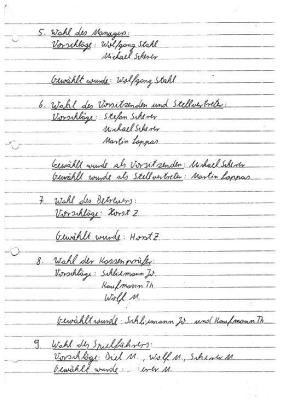 5. Wahl des Managers:
Vorschläge: Wolfgang Stahl
Michael Scherer
Gewählt wurde: Wolfgang Stahl
6. Wahl des Vorsitzenden und Stellvertreter:
Vorschläge: Stefan Scherer
Michael Scherer
Martin Lappas
Gewählt wurde als Vorsitzenden: Michael Scherer
Gewählt wurde als Stellvertreter: Martin Lappas
7. Wahl des Betreuers
Vorschläge: Horst Z.
Gewählt wurde: Horst Z.
8. Wahl der Kassenprüfer
Vorschläge: Schliemann Jo
Kaufmann Th
Wolf M.
Gewählt wurde: Schliemann Jo und Kaufmann Th.
9. Wahl des Spielführers:
Vorschläge: Diel M., Wolf M., Scherer M.
Gewählt wurde: erer M